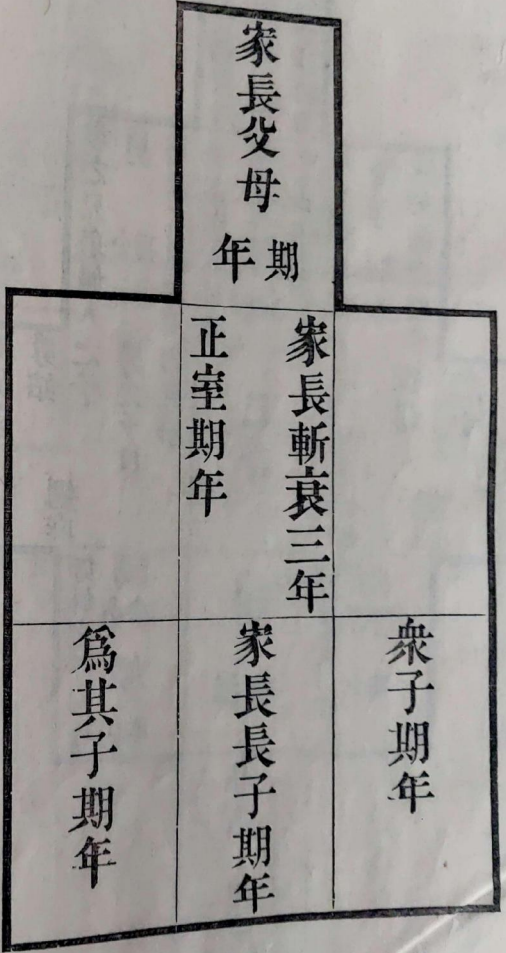 家長父母
期年
家長斬衰三年
正室期年
衆子期年
家長長子期年
爲其子期年